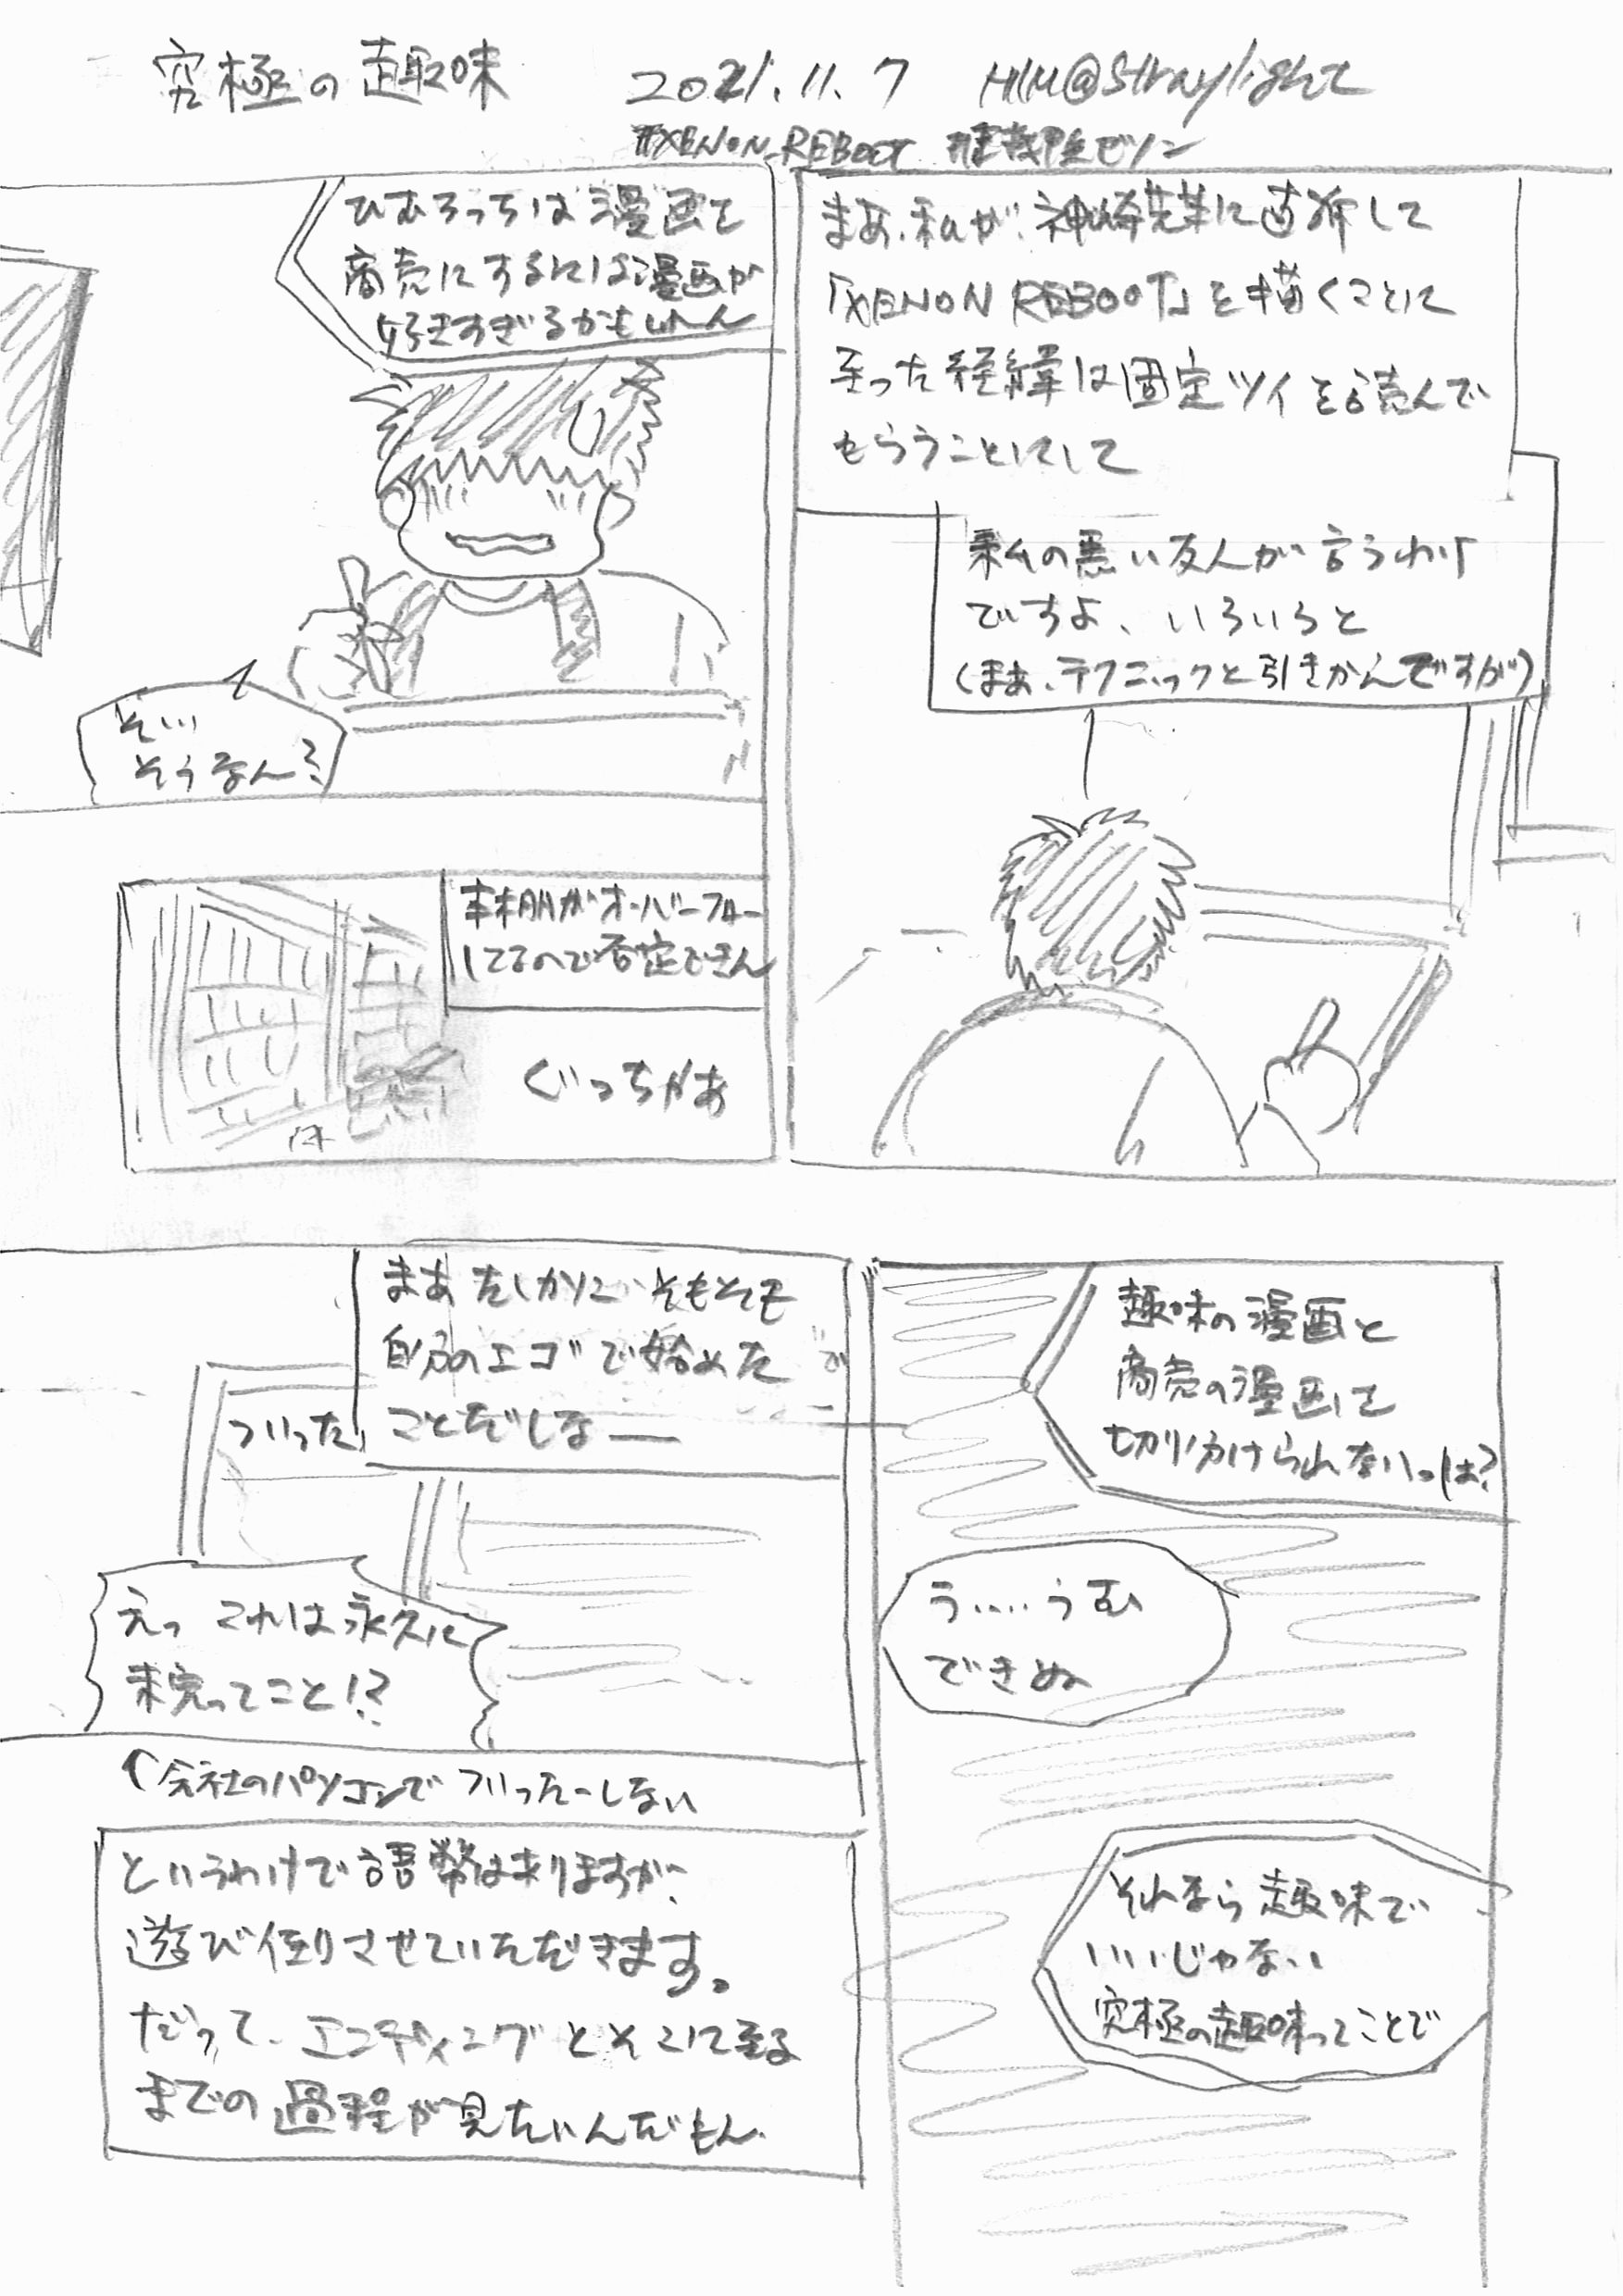 究極の趣味
2021.11.7 HIM@Straylight
#XENON_REBOOT #重機甲兵ゼノン
まあ、私が、神崎先生に直訴して
「XENON REBOOT」を描くことに
至った経緯は固定ツイを読んで
もらうことにして
私の悪い友人が言うわけ
ですよ、いろいろと
(まぁ、テクニックと引きかんですが)
ひむろっちは漫画を
商売にするには漫画が
好きすぎるかもしれん
そ…
そうなん?
本棚がオーバーフロー
してるので否定できん
ぐっちゃあ
趣味の漫画と
商売の漫画を
切り分けられないっしょ?
う……うむ
できぬ
それなら趣味で
いいじゃない
究極の趣味ってことで
まあたしかに、そもそも
自分のエゴで始めた
ことだしなー
ついった
えっ これは永久に
未完ってこと!?
会社のパソコンでついったーしない
というわけで語弊はありますが、
遊び倒させていただきます。
だって、エンディングとそこに至る
までの過程が見たいんだもん